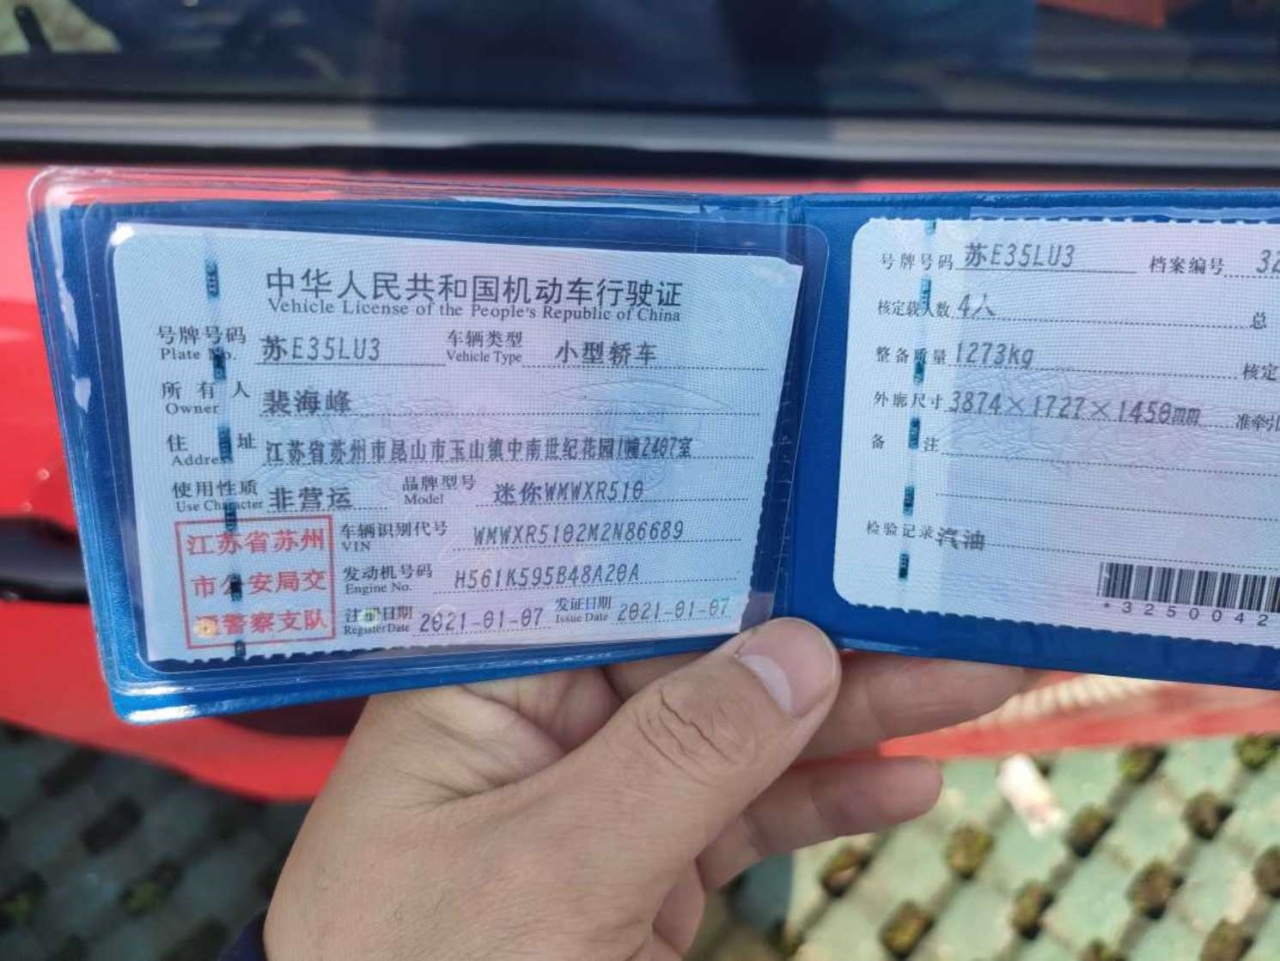 中华人民共和国机动车行驶证
Vehicle License of the People's Republic of China
号牌号码 苏E35LU3 车辆类型 小型轿车
Plate No. Vehicle Type
所有人 裴海峰
Owner
住址 江苏省苏州市昆山市玉山镇中南世纪花园1幢2407室
Address
使用性质 非营运 品牌型号 迷你WMWXR510
Use Character Model
江苏省苏州
市公安局交
通警察支队
车辆识别代号 WMWXR5102M2N86689
VIN
发动机号码 H561K595B48A20A
Engine No.
注册日期 2021-01-07 发证日期 2021-01-07
Register Date Issue Date
号牌号码 苏E35LU3 档案编号 32
核定载人数 4人 总
整备质量 1273kg 核定
外廓尺寸 3874×1727×1450mm 准牵引
备注
检验记录 汽油
*3250042